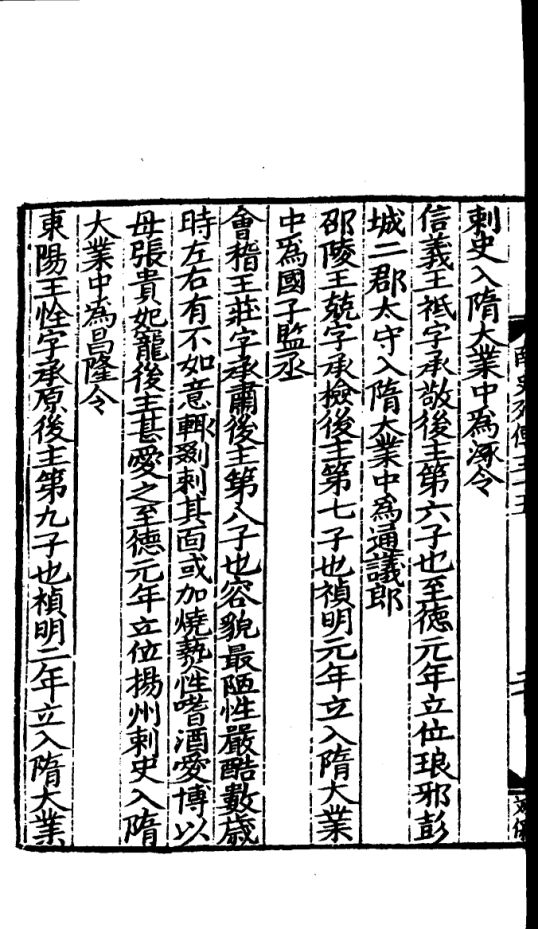 刺史入隋大業中為涿令
信義王祗字承敬後主第六子也至德元年立位琅邪彭
城二郡太守入隋大業中為通議郎
邵陵王兢字承檢後主第七子也禎明元年立入隋大業
中為國子監丞
會稽王莊字承肅後主第八子也容貌最陋性嚴酷數歲
時左右有不如意輒剟刺其面或加燒爇性嗜酒愛博以
母張貴妃寵後主甚愛之至德元年立位揚州刺史入隋
大業中為昌隆令
東陽王恮字承原後主第九子也禎明二年立入隋大業